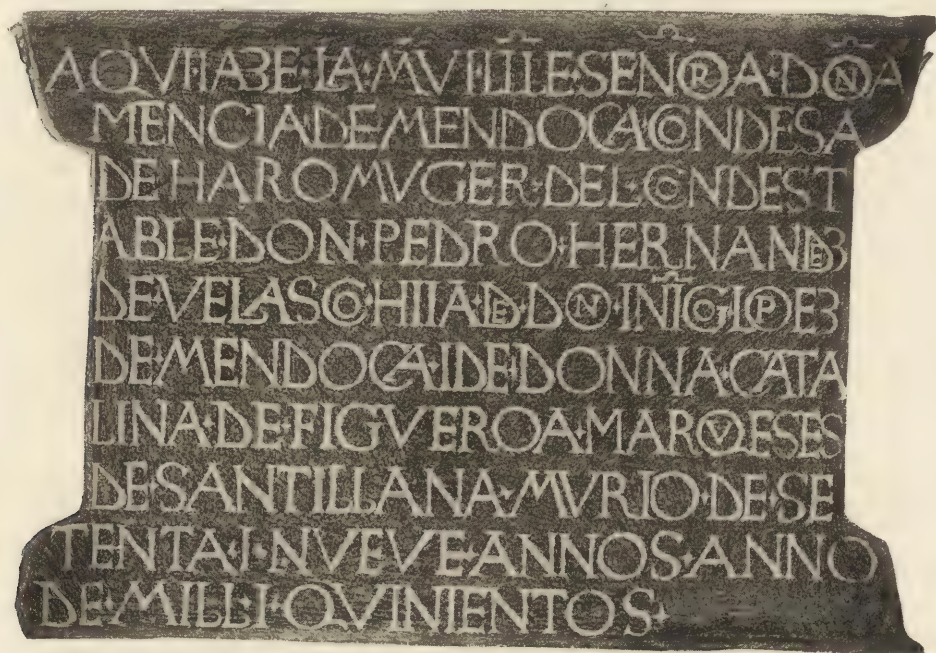 AQVI·IAƷE·LA·MVI·ILLE·SENORA·DONA
MENCIA DE MENDOCA CONDESA
DE HARO MVGER·DEL·CONDEST
ABLE·DON·PEDRO·HERNANDEƷ
DE·VELASCO·HIIA·DE·DON·INIGO·LOPEƷ
DE·MENDOCA·I DE·DONNA·CATA
LINA·DE·FIGVEROA·MARQVESES
DE·SANTILLANA·MVRIO·DE·SE
TENTA·I·NVEVE·ANNOS·ANNO
DE·MILL·I·QVINIENTOS·